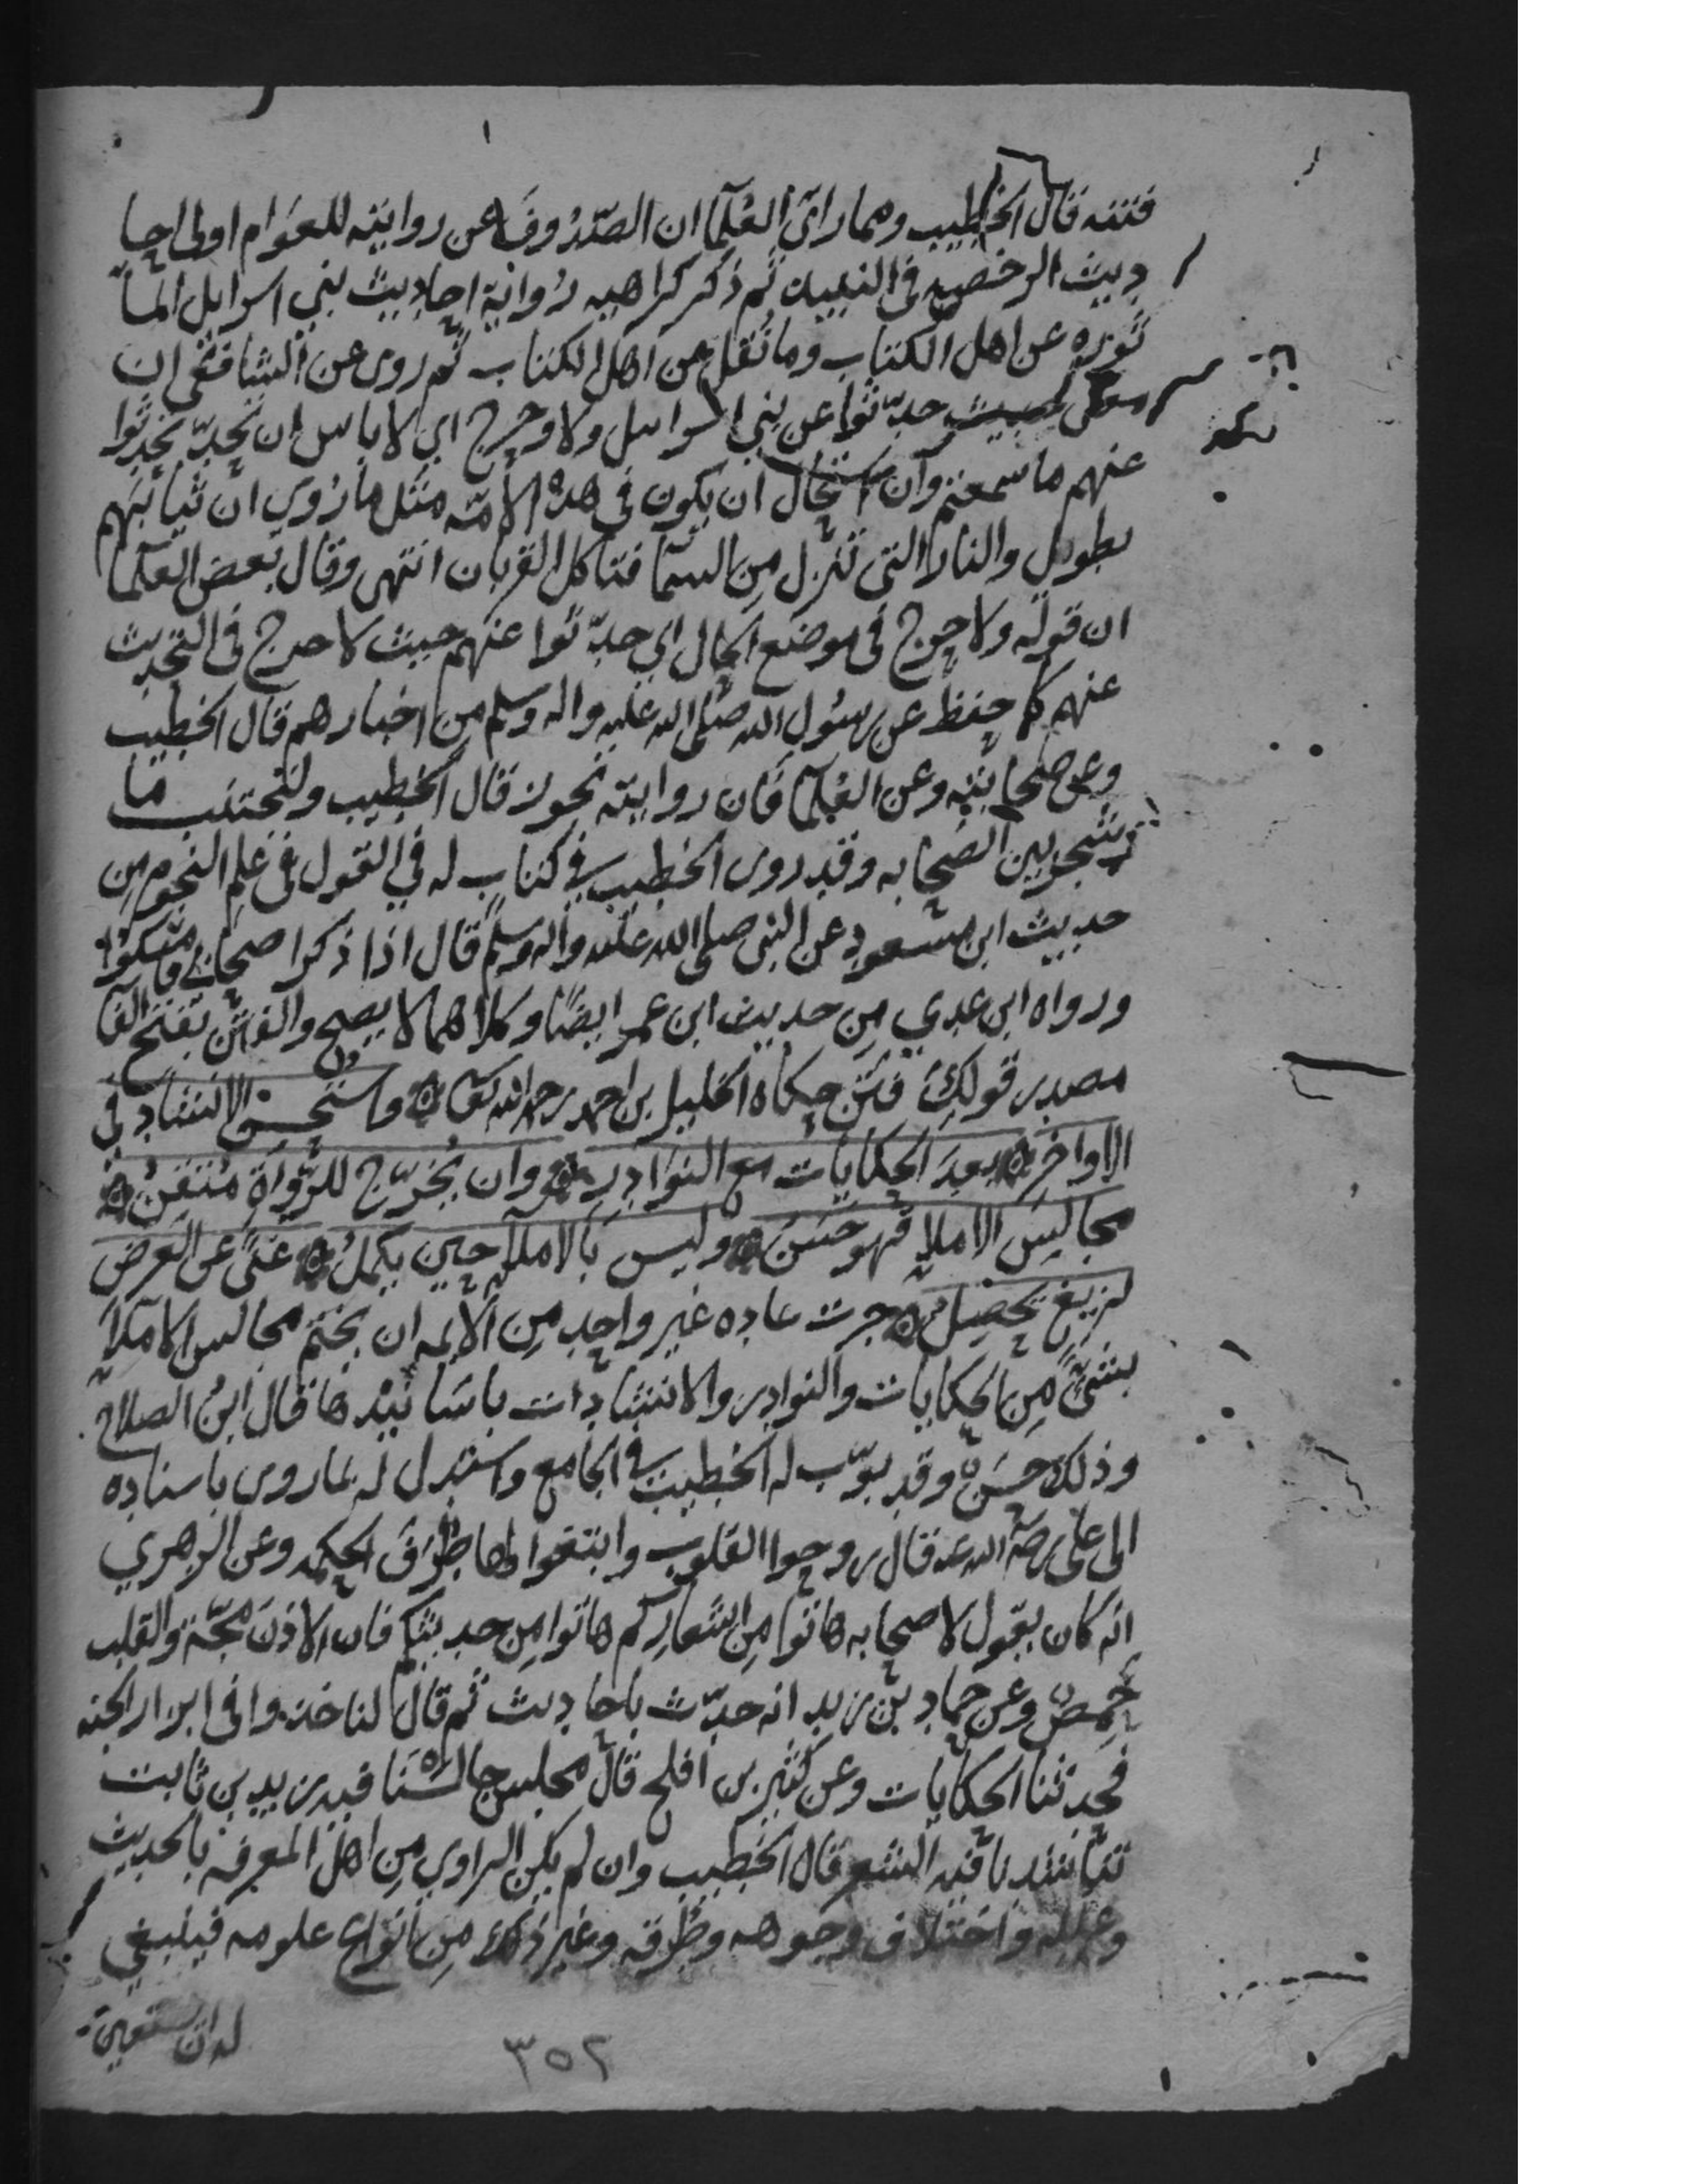 فتنه قال الخطيب ومما راى العلما ان الصدوف عن روايته للعوام اولى احا
ديث الرخص فى النبيذ ثم ذكر كراهيه رواية احاديث بني اسرايل الما
ثوره عن اهل الكتاب وما نقل عن اهل الكتاب ثم روى عن الشافعي ان
معنى حديث حدثوا عن بني اسرايل ولا حرج اي لا باس ان تحدثوا
عنهم ما سمعتم وان استحال ان يكون في هذه الامه مثل ما روي ان ثيابهم
تطول والنار التي تنزل من السما فتاكل القربان انتهى وقال بعض العلما
ان قوله ولا حرج في موضع الحال اي حدثوا عنهم حيث لا حرج في التحديث
عنهم كما حفظ عن رسول الله صلى الله عليه واله وسلم من اخبارهم قال الخطيب
وعن صحابته وعن العلما فان روايته تجوز قال الخطيب وليجتنب ما
شجر بين الصحابه وقد روى الخطيب في كتاب له في القول في علم النجوم من
حديث ابن مسعود عن النبي صلى الله عليه واله وسلم قال اذا ذكر اصحابي فامسكوا
ورواه ابن عدي من حديث ابن عمر ايضا وكلاهما لا يصح والفتن بفتح الفا
مصدر قولك فتن حكاه الخليل بن احمد رحمه الله تعالى واستحسن الانشاد في
الاواخر بعد الحكايات مع النوادر وان يخرج للرواة متقن
مجالس الاملا فهو حسن وليس بالاملا حين يكمل غنى عن العرض
لزيغ يحصل جرت عاده غير واحد من الايمه ان يختم مجالس الاملا
بشي من الحكايات والنوادر والانشادات باسانيدها قال ابن الصلاح
وذلك حسن وقد بوب له الخطيب في الجامع واستدل له بما روى باسناده
الى علي رضي الله عنه قال روحوا القلوب وابتغوا لها طرق الحكمه وعن الزهري
انه كان يقول لاصحابه هاتوا من اشعاركم هاتوا من حديثكم فان الاذن مجة والقلب
حمض وعن حماد بن زيد انه حدث باحاديث ثم قال لنا خذوا في ابزار الجنه
فحدثنا الحكايات وعن كثير بن افلح قال مجلس جالسنا فيه زيد بن ثابت
تناشدنا فيه الشعر قال الخطيب وان لم يكن الراوي من اهل المعرفه بالحديث
وعلله واختلاف وجوهه وطرقه وغير ذلك من انواع علومه فينبغي
له ان يستعين
٣٥٢